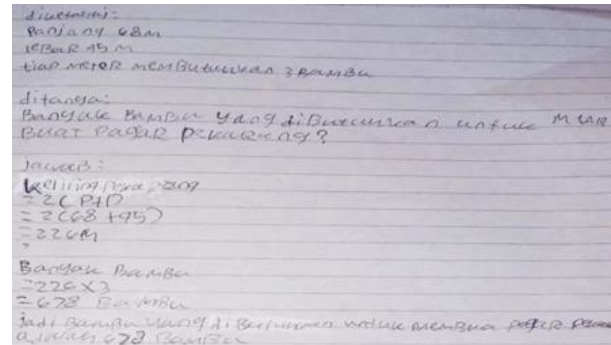 diketahui:
Panjang 68m
lebar 45 M
tiap meter membutuhkan 3 Bambu
ditanya:
Banyak Bambu yang diButuhkan untuk
Buat Pagar pekarang?
Jawab:
keliling
= 2(P+l)
= 2(68 +45)
= 226m
Banyak Bambu
= 226 X 3
= 678 Bambu
Jadi Bambu yang di Butuhkan untuk membua pagar
adalah 678 Bambu